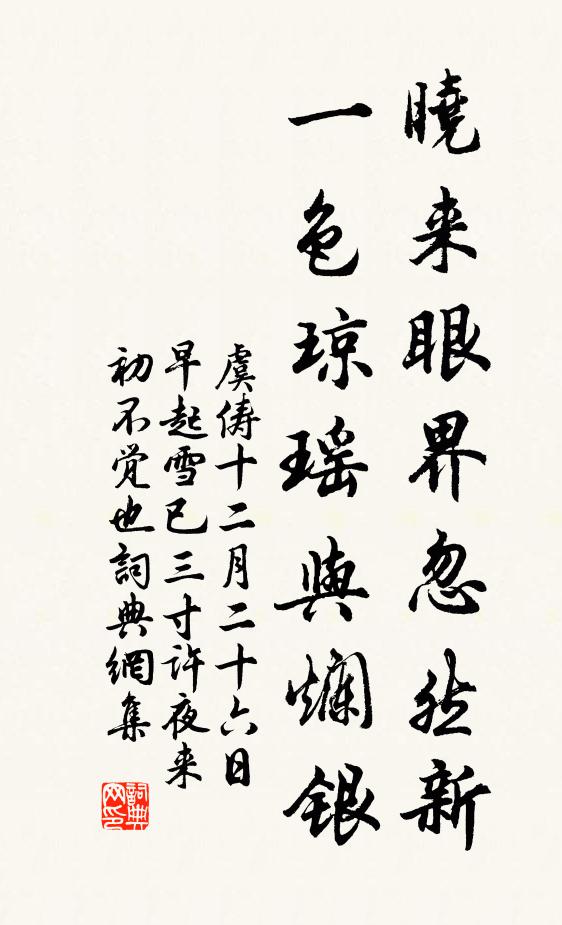 曉来眼界忽然新
一色琼瑶與爛銀
虞儔十二月二十六日
早起雪已三寸許夜来
初不覚也詞典網集
詞典网印